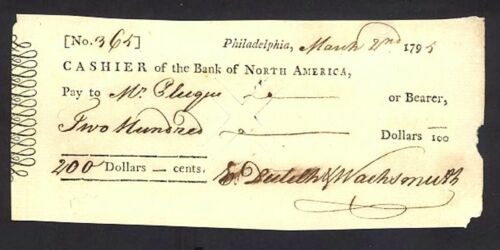 [No. 365] Philadelphia, March 2nd 1795
CASHIER of the Bank of NORTH AMERICA,
Pay to Mr. or Bearer,
Two Hundred Dollars 100
200 Dollars — cents. & Wachsmuth